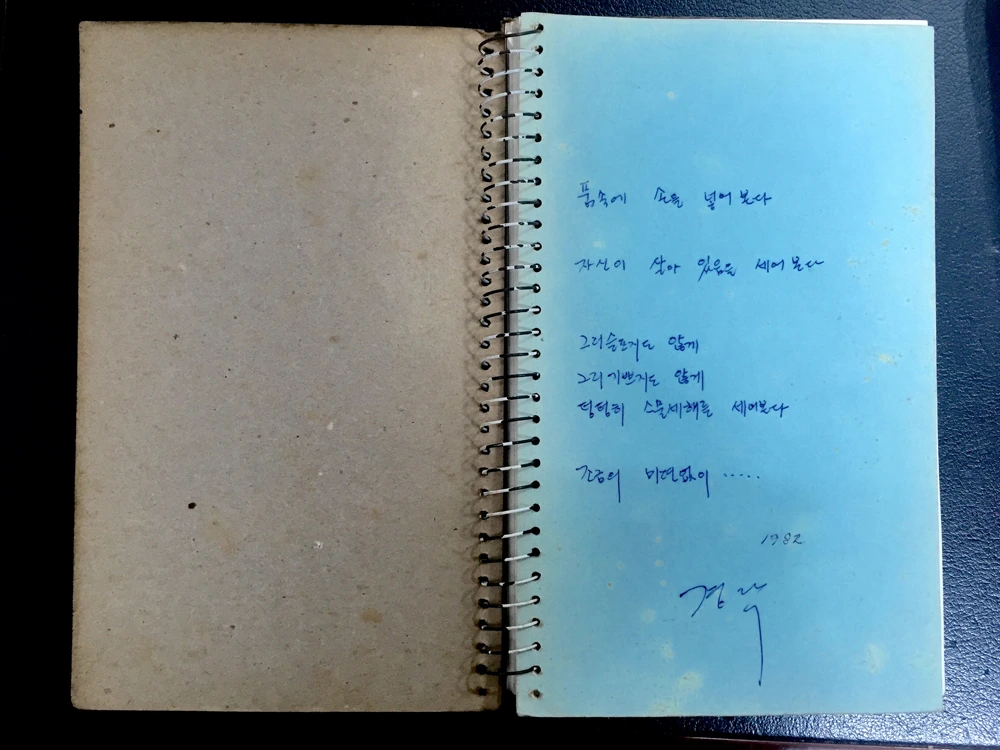 품속에 손을 넣어 본다
자신이 살아 있음을 세어 본다
그리슬프지도 않게
그리 기쁘지도 않게
텅텅히 스물세해를 세어본다
조금의 미련없이 .....
1982